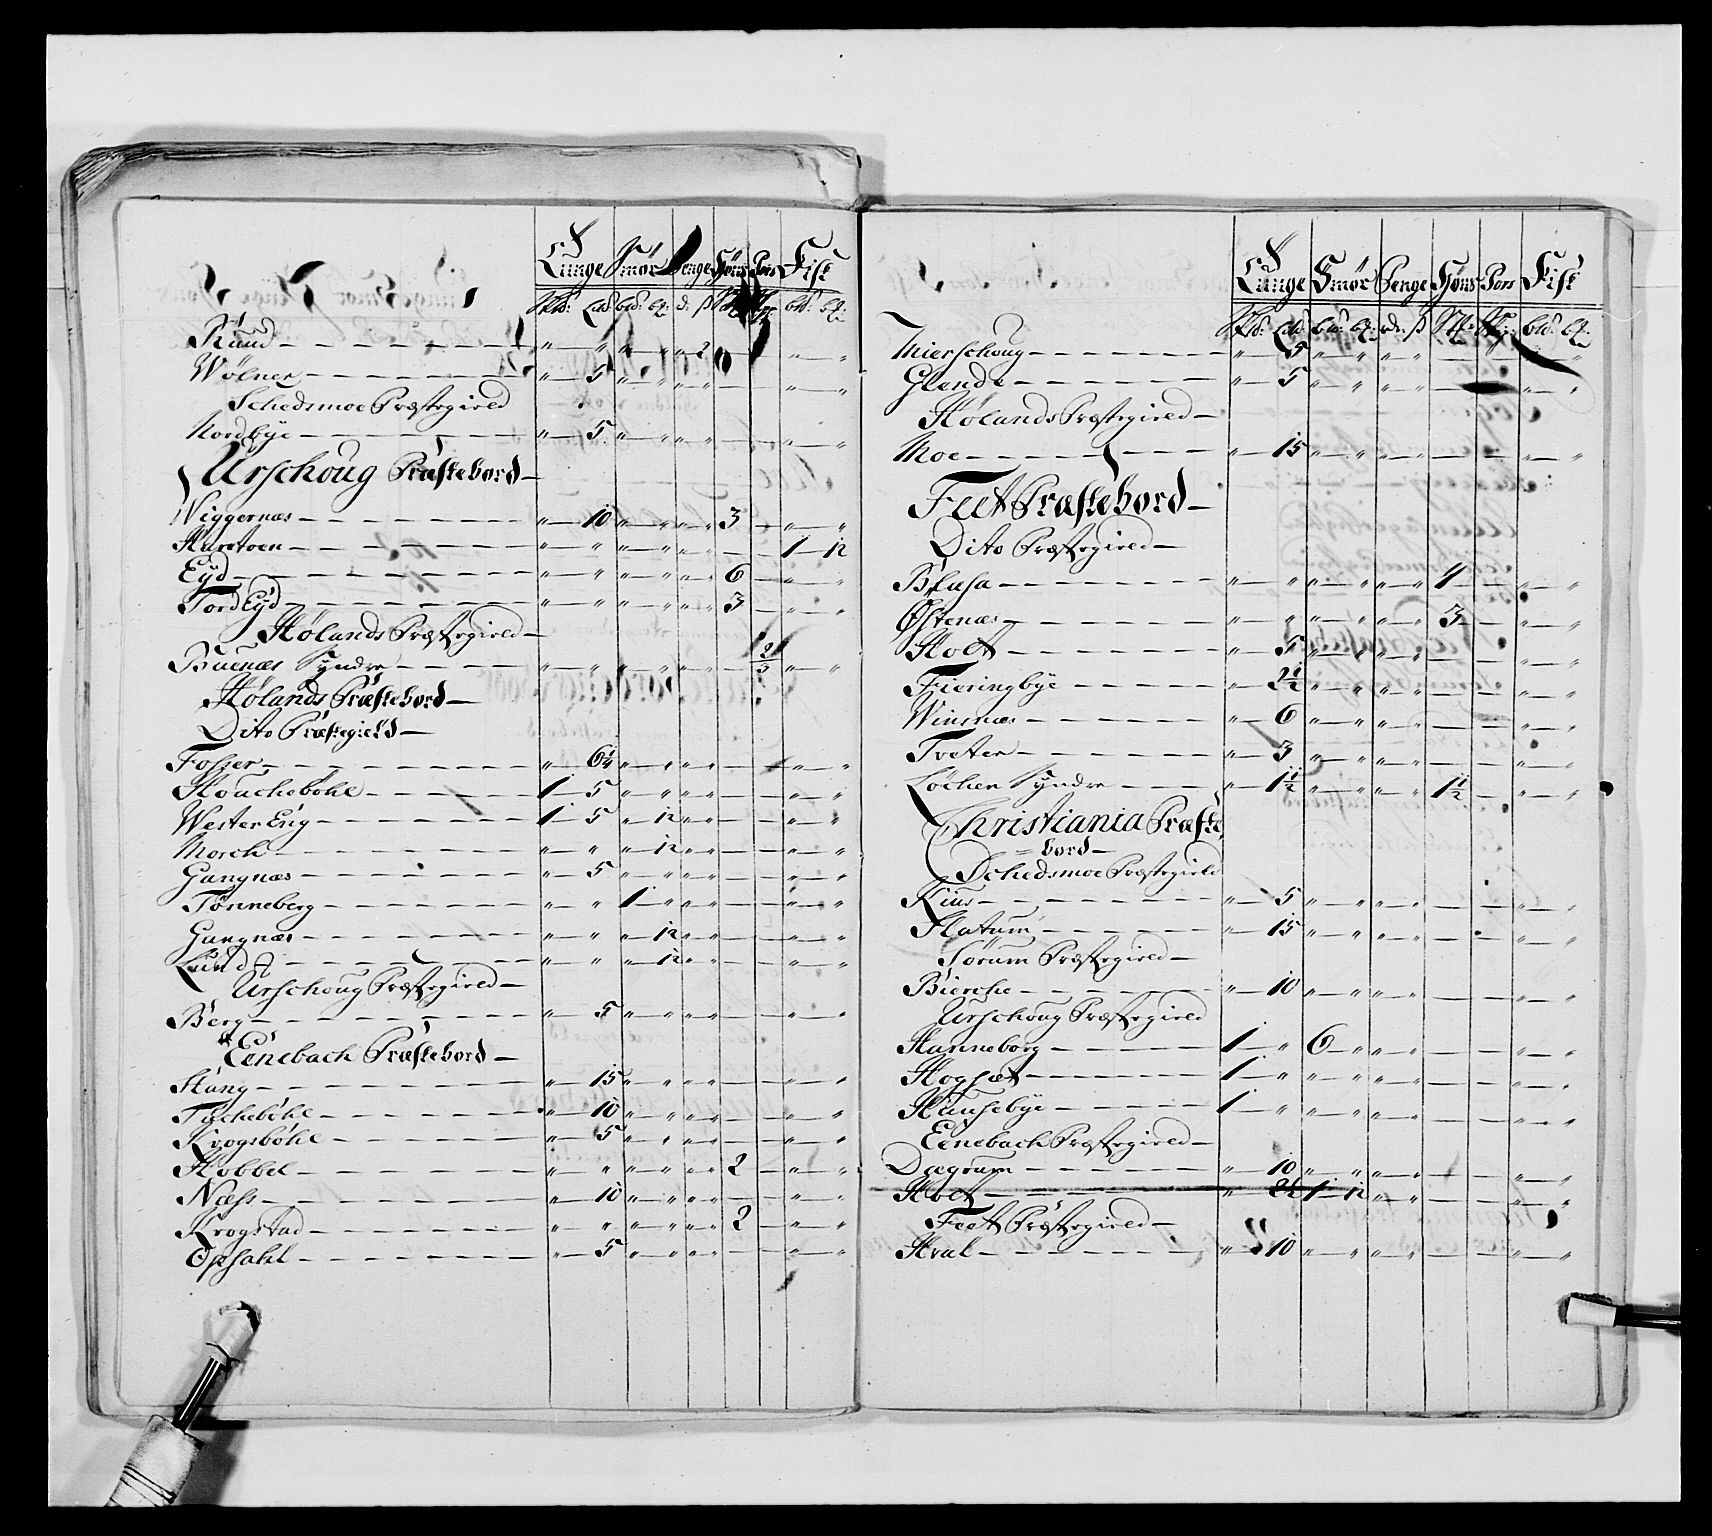 Tunge Smør Penge Høns Pors Fisk
Rüüd — „ „ „ „ „ 2 „ „
Wølner — „ 5 „ „ „ „ — „ „
Schedsmoe Præstegield
Nordbÿe — „ 5 „ „ „ „ — „ „
Urschoug Præstebord —
Wiggernæs — „ 10 „ „ „ „ 3 — „ „
Harstoen — „ „ „ „ „ „ — 1 12
Eÿd — „ „ „ „ „ „ 6 — „ „
Tord Eÿd — „ „ „ „ „ „ 3 — „ „
Hølands Præstegield —
Büenæs Sÿndre — „ „ „ „ „ „ — 2/3 „ „
Hølands Præstebord —
Dito Præstegield —
Fosser — „ 6 1/4 „ „ „ „ — „ „
Houchebøhl — 1 5 „ „ „ „ — „ „
Wester Eng — 1 5 „ 12 „ „ — „ „
Morch — „ „ „ 12 „ „ — „ „
Gangnæs — „ 5 „ „ „ „ — „ „
Tønneberg — „ „ 1 „ „ „ — „ „
Gangnæs — „ „ „ 12 „ „ — „ „
Lund — „ „ „ 12 „ „ — „ „
Urschoug Præstegield —
Berg — „ 5 „ „ „ „ — „ „
Eenebach Præstebord —
Stang — „ 15 „ „ „ „ — „ „
Tÿchebøhl — „ 10 „ „ „ „ — „ „
Krogsbøhl — „ 5 „ „ „ „ — „ „
Hobbel — „ „ „ „ „ „ 2 — „ „
Næss — „ 10 „ „ „ „ — „ „
Krogstad — „ „ „ „ „ „ 2 — „ „
Opsahl — „ 5 „ „ „ „ — „ „
Tunge Smør Penge Høns Pors Fisk
Mierschoug — „ 5 „ „ „ „ „
Glende — „ 5 „ „ „ „ — „ „
Hølands Præstegield —
Moe — „ 15 „ „ „ „ — „ „
Feet Præstebord —
Dito Præstegield —
Blasa — „ „ „ „ „ „ 4 — „ „
Østenæs — „ „ „ „ „ „ 3 — „ „
Holt — „ 5 „ „ „ „ — „ „
Fieringbÿe — „ 2 1/2 „ „ „ „ — „ „
Winsnæs — „ 6 „ „ „ „ — „ „
Tveter — „ 3 „ „ „ „ — „ „
Løchen Sÿndre — „ 1 1/2 „ „ „ „ 1 1/2 — „ „
Christiania Præste
= bord —
Schedsmoe Præstegield
Kius — „ 5 „ „ „ „ — „ „
Flatum — „ 15 „ „ „ „ — „ „
Sørum Præstegield —
Bierche — „ 10 „ „ „ „ — „ „
Urschoug Præstegield
Hanneborg — 1 „ 6 „ „ „ — „ „
Hogsæt — 1 „ „ „ „ „ — „ „
Haüsebÿe — 1 „ „ „ „ „ — „ „
Eenebach Præstegield —
Dægrum — „ 10 „ „ „ „ — „ „
Holt — „ 1 12 „ „ — „ „
Feet Præstegield —
Hval — „ 10 „ „ „ „ — „ „